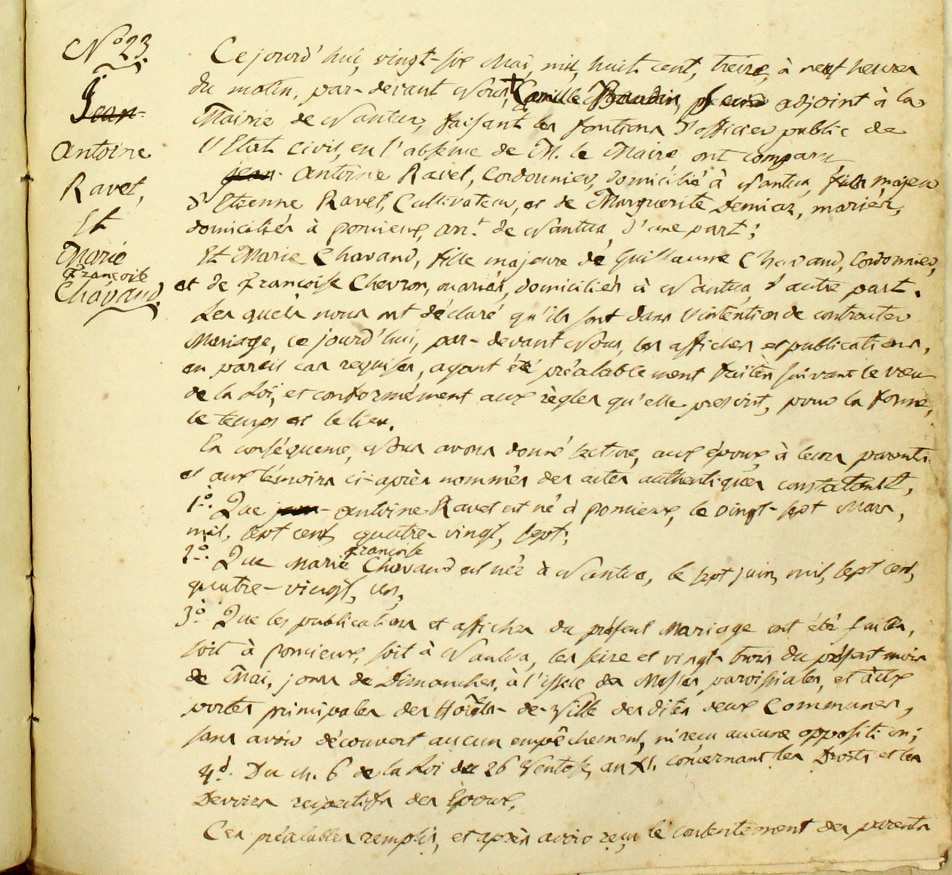 N° 23.
Jean
Antoine
Ravet,
Et
Marie
françoise
Chavand
Ce jourd'hui, vingt-six Mai, mil, huit cent, treize, à neuf heures
du matin, par-devant Nous, Camille Baudin, adjoint à la
Mairie de Nantua, faisant les fontions d'officier public de
l'Etat Civil, en l'absence de M. le Maire, ont comparu
jean Antoine Ravet, Cordonnier, domicilié à Nantua, fils majeur
d'Etienne Ravet, Cultivateur, et de Marguerite Demiaz, mariés,
domiciliés à poncieux, arr.t de Nantua d'une part;
Et Marie Chavand, fille majeure de Guillaume Chavand, Cordonnier,
et de françoise Chevron, mariés, domiciliés à Nantua d'autre part.
Les quels nous ont déclaré qu'ils sont dans l'intention de contracter
Mariage, ce jourd'hui, par-devant Nous, les affiches et publications,
en pareil cas requises, ayant été préalablement faites suivant le vœu
de la Loi, et conformément aux règles qu'elle prescrit, pour la forme,
le temps et le lieu.
En conséquence, Nous avons donné lecture, aux époux, à leurs parents
et aux témoins ci-après nommés des actes authentiques constatant,
1.° Que jean Antoine Ravet est né à poncieux, le vingt-sept Mars,
mil, sept cent, quatre-vingt, sept;
2.° Que Marie françoise Chavand est née à Nantua, le sept juin, mil, sept cent,
quatre-vingt, un,
3.° Que les publications et affiches du présent Mariage ont été faites,
soit à poncieux, soit à Nantua, les seize et vingt-trois du présent mois
de Mai, jours de Dimanches, à l'issue des Messes paroissiales, et aux
portes principales des Hôtels-de-Ville des dites deux Communes,
sans avoir découvert aucun empêchement, ni reçu aucune opposition;
4.° Du ch. 6 de la Loi du 26 Ventose, an XI. concernant les Droits et les
Devoirs respectifs des Epoux.
Ces préalables remplis, et après avoir reçu le contentement des parents